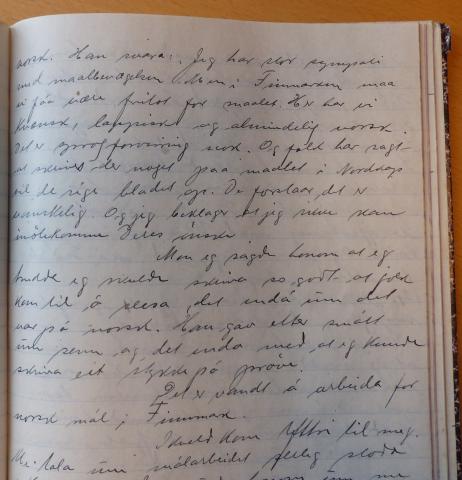 norsk. Han svara: Jeg har stor sympati
med maalbevægelsen. Men i Finmarken maa
vi faa være fritat for maalet. Her har vi
kvensk, lappisk og almindelig norsk.
Det er sprogforvirring nok. Og folk har sagt
at skrives der noget paa maalet i Nordkaps
vil de sige bladet op. De forstaar, det er
vanskelig. Og jeg beklager at jeg ikke kan
imøtekomme Deres ønske.
Men eg sagde honom at eg
trudde eg skulde skriva so godt at folk
kom til å lesa det endå um det
var på norsk. Han gav etter smått
um senn, og det enda med at eg kunde
skriva eit stykke på prøve.
Det er vandt å arbeida for
norsk mål i Finnmark.
Ikveld kom til meg.
Me tala um målarbeidet
um me